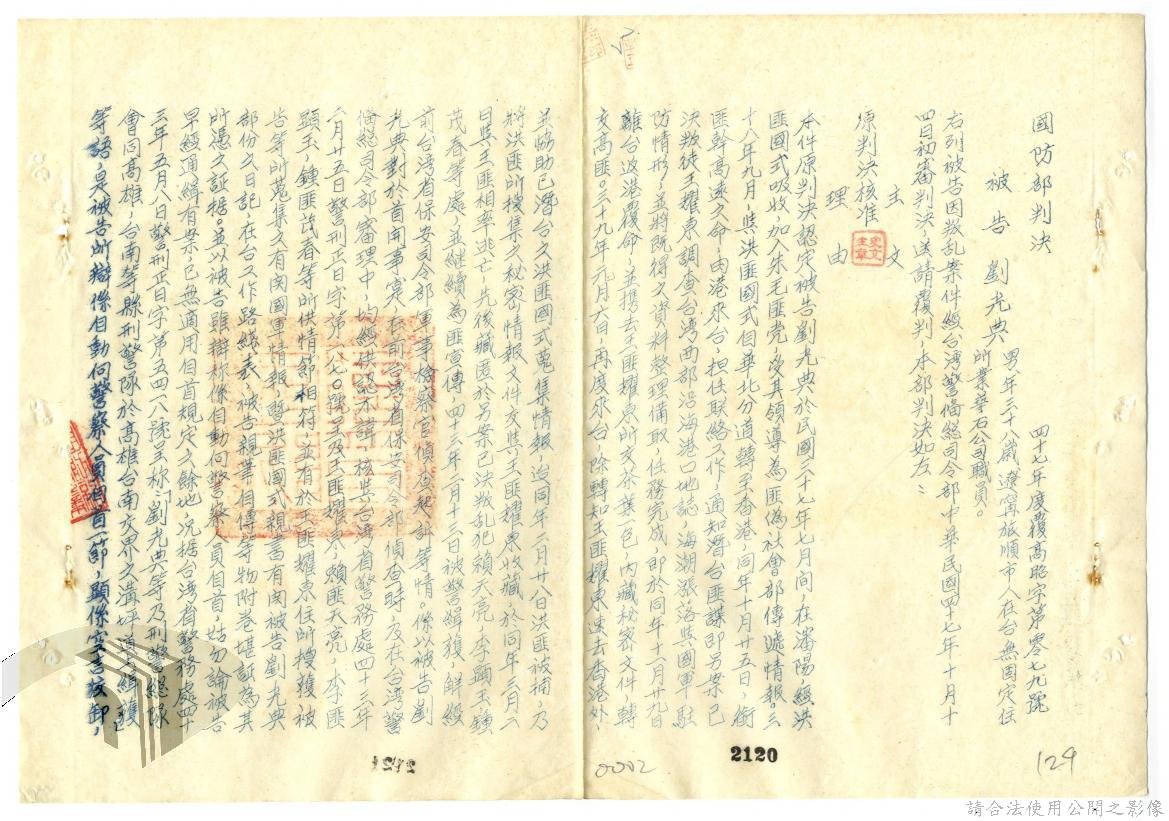 國防部判決
四十七年度覆高昭字第零七九號
被告 劉光典 男年三十八歲遼甯旅順市人在台無固定住
所業華石公司職員。
右列被告因叛乱案件經台灣警備總司令部中華民國四十七年十月十
四日初審判決送請覆判，本部判決如左：
主文
原判決核准。
理由
本件原判決認定被告劉光典於民國三十七年七月间，在瀋陽經洪
匪國式吸收，加入朱毛匪党，受其領導為匪偽社會部傳遞情報。三
十八年九月，與洪匪國式自華北分道轉至香港，同年十月廿五日，銜
匪幹高速之命，由港來台，担任联絡工作，通知潛台匪諜即另案已
決叛徒王耀東調查台湾西部沿海港口地誌，海潮漲落與國軍駐
防情形，並將既得之資料整理備取，任務完成，即於同年十一月廿九日
離台返港覆命，並携去王匪耀東所交茶葉一包，內藏秘密文件轉
交高匪。三十九年元月六日，再度來台，除轉知王匪耀東速去香港外，
並協助已潛台之洪匪國式蒐集情報，迨同年二月廿八日洪匪被捕，乃
將洪匪所殘集之秘密情報文件交與王匪耀東收藏，於同年三月一
日與王匪相率逃亡，先後藏匿於另案已決叛乱犯賴天亮，李顯玉，鍾
茂春等處，並継續為匪宣傳，四十三年二月十三日被警緝獲，解經
前台湾省保安司令部軍事檢察官偵查起訴等情。係以被告劉
光典對於首開事实，在前台湾省保安司令部偵查時，及在台湾警
備總司令部審理中，均經供認不諱，核與台湾省警務處四十三年
二月廿五日警刑正日字第一八七〇號，及王匪耀東，賴匪天亮，李匪
顯玉，鍾匪茂春等所供情節相符，並有於王匪耀東住所搜獲，被
告等所蒐集之有関國軍情報，暨洪匪國式親書有関被告劉光典
部份之日記，在台工作路綫表，被告親筆自傳等物附卷堪証為其
所憑之証据。並以被告雖辯称係自動向警察人員自首，姑勿論被告
早經通緝有案，已無適用自首規定之餘地，况据台湾省警務處四十
三年五月八日警刑正日字第五四一八號呈称：「劉光典等乃刑警總隊
會同高雄，台南等縣刑警隊於高雄台南交界之溝坪首山緝獲」
等語，是被告所辯係自動向警察人員自首一節，顯係妄言諉卸，
2120
0002
129
2121
請合法使用公開之影像